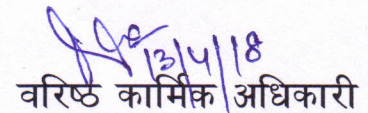 13/4/18
वरिष्ठ कार्मिक अधिकारी